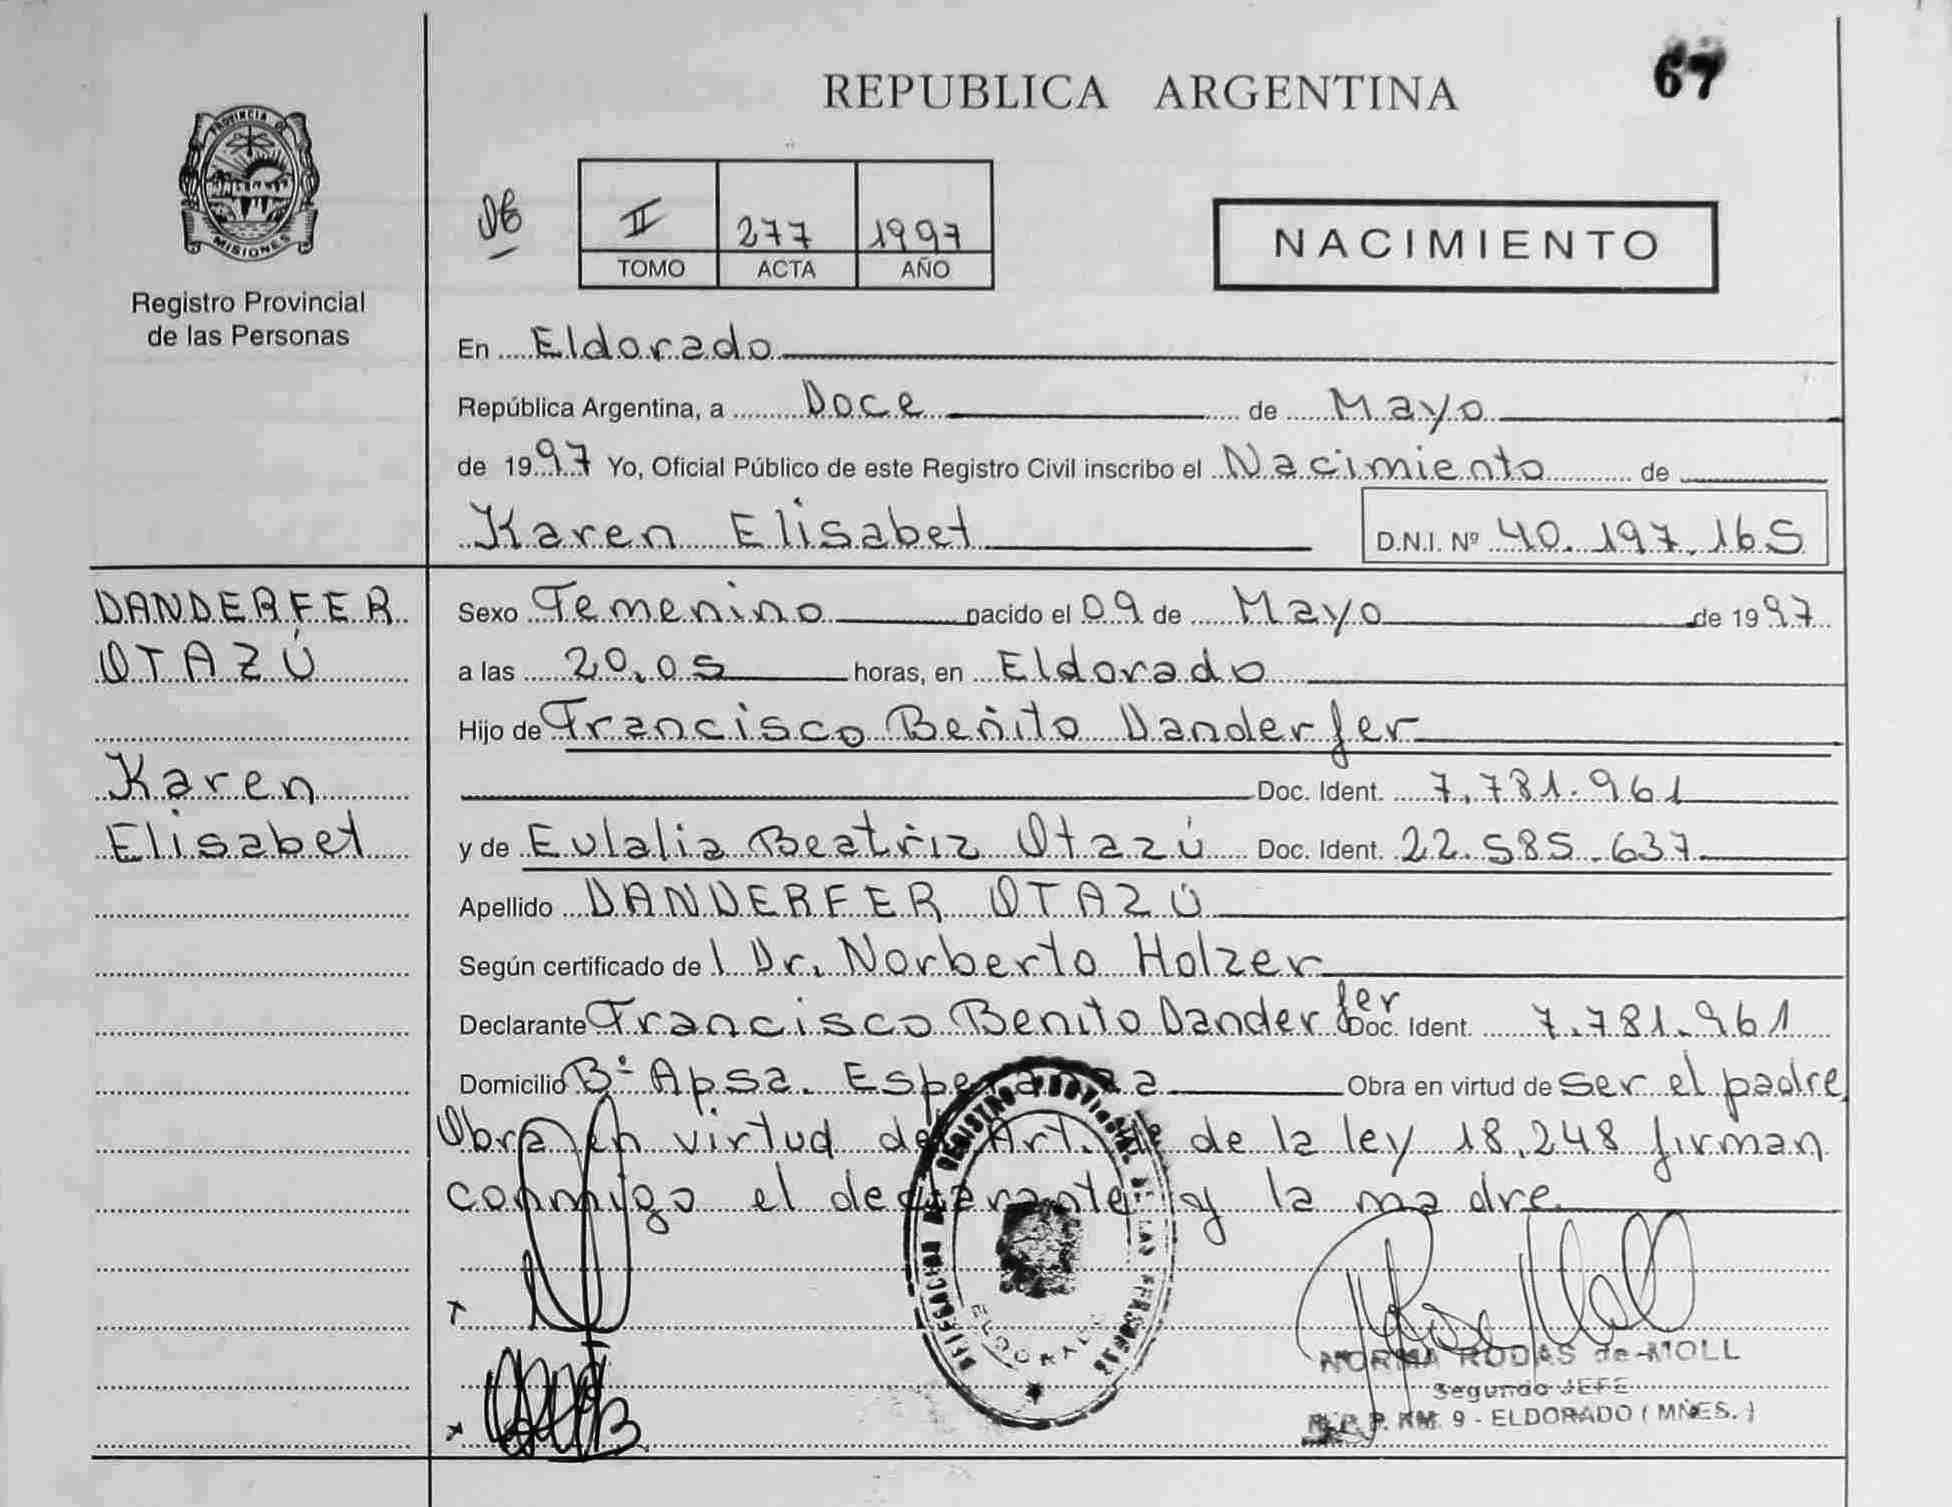 67
REPUBLICA ARGENTINA
PROVINCIA DE
MISIONES
Registro Provincial
de las Personas
II 277 1997
TOMO ACTA AÑO
NACIMIENTO
En Eldorado
República Argentina, a Doce de Mayo
de 1997 Yo, Oficial Público de este Registro Civil inscribo el Nacimiento de
Karen Elisabet D.N.I. Nº 40.197.165
DANDERFER
OTAZÚ
Karen
Elisabet
Sexo Femenino nacido el 09 de Mayo de 1997
a las 20.05 horas, en Eldorado
Hijo de Francisco Benito Danderfer
Doc. Ident. 7.781.961
y de Eulalia Beatriz Otazú Doc. Ident. 22.585.637
Apellido DANDERFER OTAZÚ
Según certificado del Dr. Norberto Holzer
Declarante Francisco Benito Danderfer Doc. Ident. 7.781.961
Domicilio Bº Apsa. Esperanza Obra en virtud de ser el padre
Obra en virtud del Art. de la ley 18.248 firman
conmigo el declarante y la madre
REGISTRO PROVINCIAL DE LAS PERSONAS
ELDORADO
NORMA RODAS de MOLL
Segundo JEFE
R.P.P. KM. 9 - ELDORADO (MNES.)